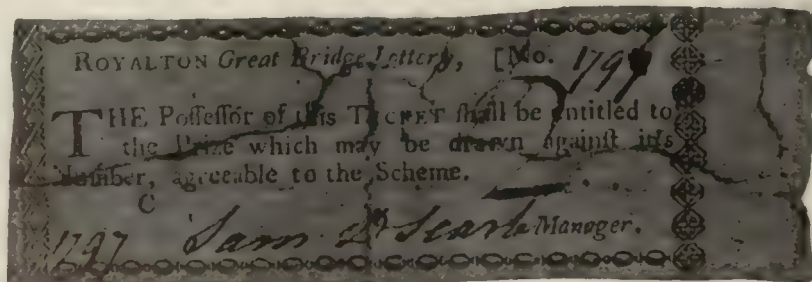 ROYALTON Great Bridge Lottery, [No. 179
THE Poſſeſſor of this TICKET ſhall be entitled to
the Prize which may be drawn againſt its
Number, agreeable to the Scheme.
C
1797 Sam Searle Manager.